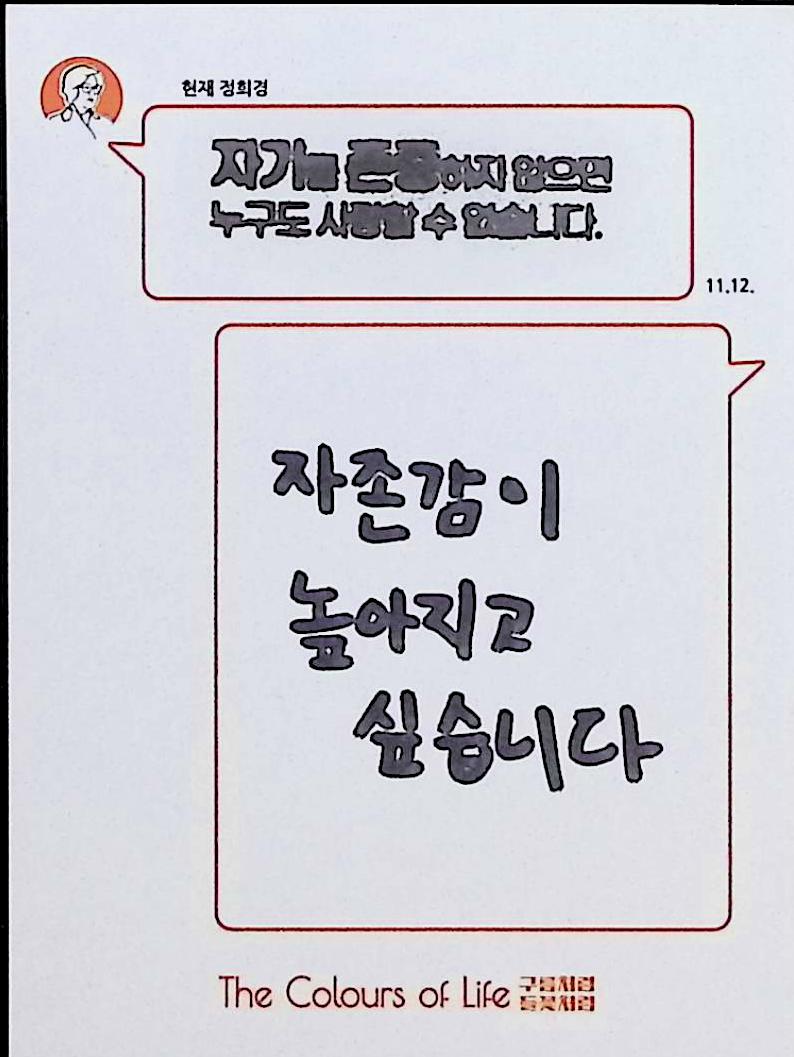 현재 정희경
자기를 존중하지 않으면
누구도 사랑할 수 없습니다.
11.12.
자존감이
높아지고
싶습니다
The Colours of Life 구름처럼
들꽃처럼